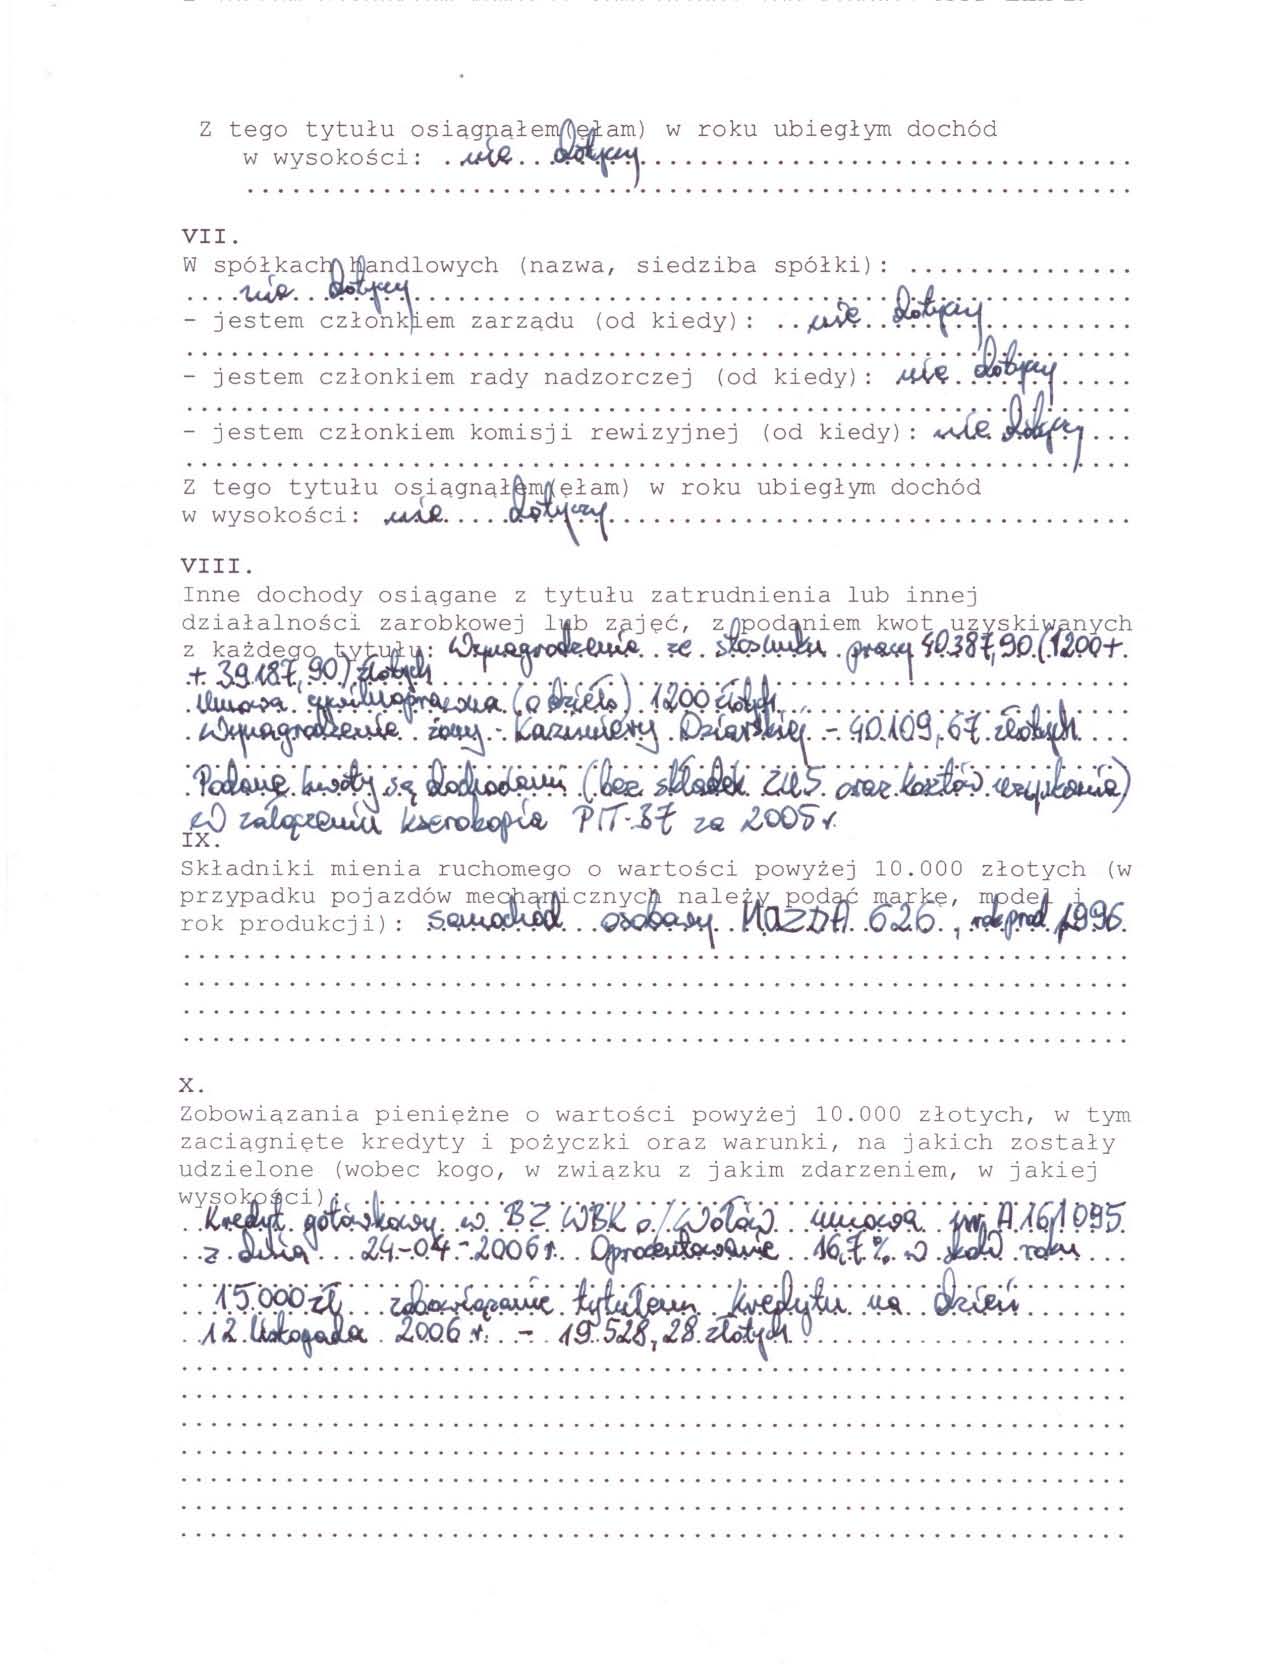 Z tego tytułu osiągnąłem(ełam) w roku ubiegłym dochód
w wysokości: nie dotyczy
VII.
W spółkach handlowych (nazwa, siedziba spółki):
nie dotyczy
- jestem członkiem zarządu (od kiedy): nie dotyczy
- jestem członkiem rady nadzorczej (od kiedy): nie dotyczy
- jestem członkiem komisji rewizyjnej (od kiedy): nie dotyczy
Z tego tytułu osiągnąłem(ełam) w roku ubiegłym dochód
w wysokości: nie dotyczy
VIII.
Inne dochody osiągane z tytułu zatrudnienia lub innej
działalności zarobkowej lub zajęć, z podaniem kwot uzyskiwanych
z każdego tytułu: Wynagrodzenie ze stosunku pracy 40.387,90 (1200+
+ 39.187,90) złotych
Umowa cywilnoprawna (o dzieło) 1200 złotych
Wynagrodzenie żony - Kazimiery Dziarskiej - 40.109,67 złotych
Podane kwoty są dochodami (bez składek ZUS oraz kosztów uzyskania)
W załączeniu kserokopia PIT-37 za 2005 r.
IX.
Składniki mienia ruchomego o wartości powyżej 10.000 złotych (w
przypadku pojazdów mechanicznych należy podać markę, model i
rok produkcji): samochód osobowy MAZDA 626, rok prod. 1996
X.
Zobowiązania pieniężne o wartości powyżej 10.000 złotych, w tym
zaciągnięte kredyty i pożyczki oraz warunki, na jakich zostały
udzielone (wobec kogo, w związku z jakim zdarzeniem, w jakiej
wysokości):
Kredyt gotówkowy w BZ WBK o/Wołów umowa nr A 161095
z dnia 24-04-2006 r. Oprocentowanie 16,7% w skali roku
15.000 zł, zobowiązanie tytułem kredytu na dzień
12 listopada 2006 r. - 19.528,28 złotych